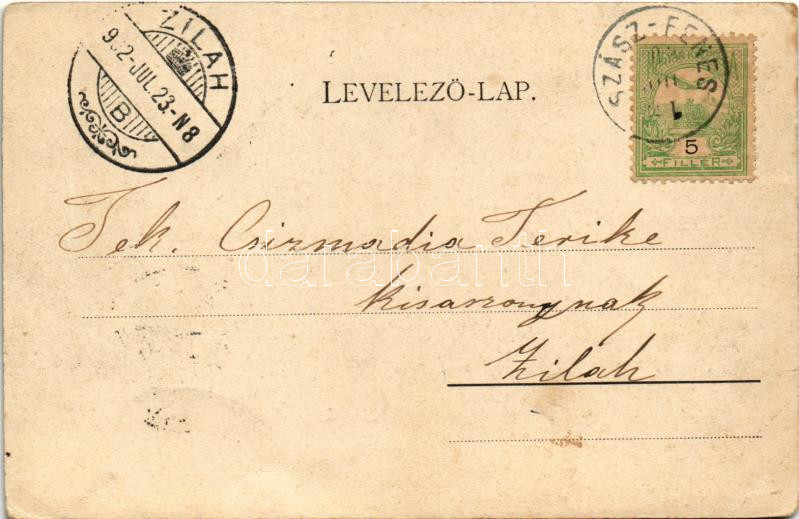 ZILAH
902-JUL.23-N8
B
LEVELEZŐ-LAP.
SZÁSZ-FENES
5
FILLÉR
Tek. Csizmadia Terike
kisasszonynak
Zilah
darabanth